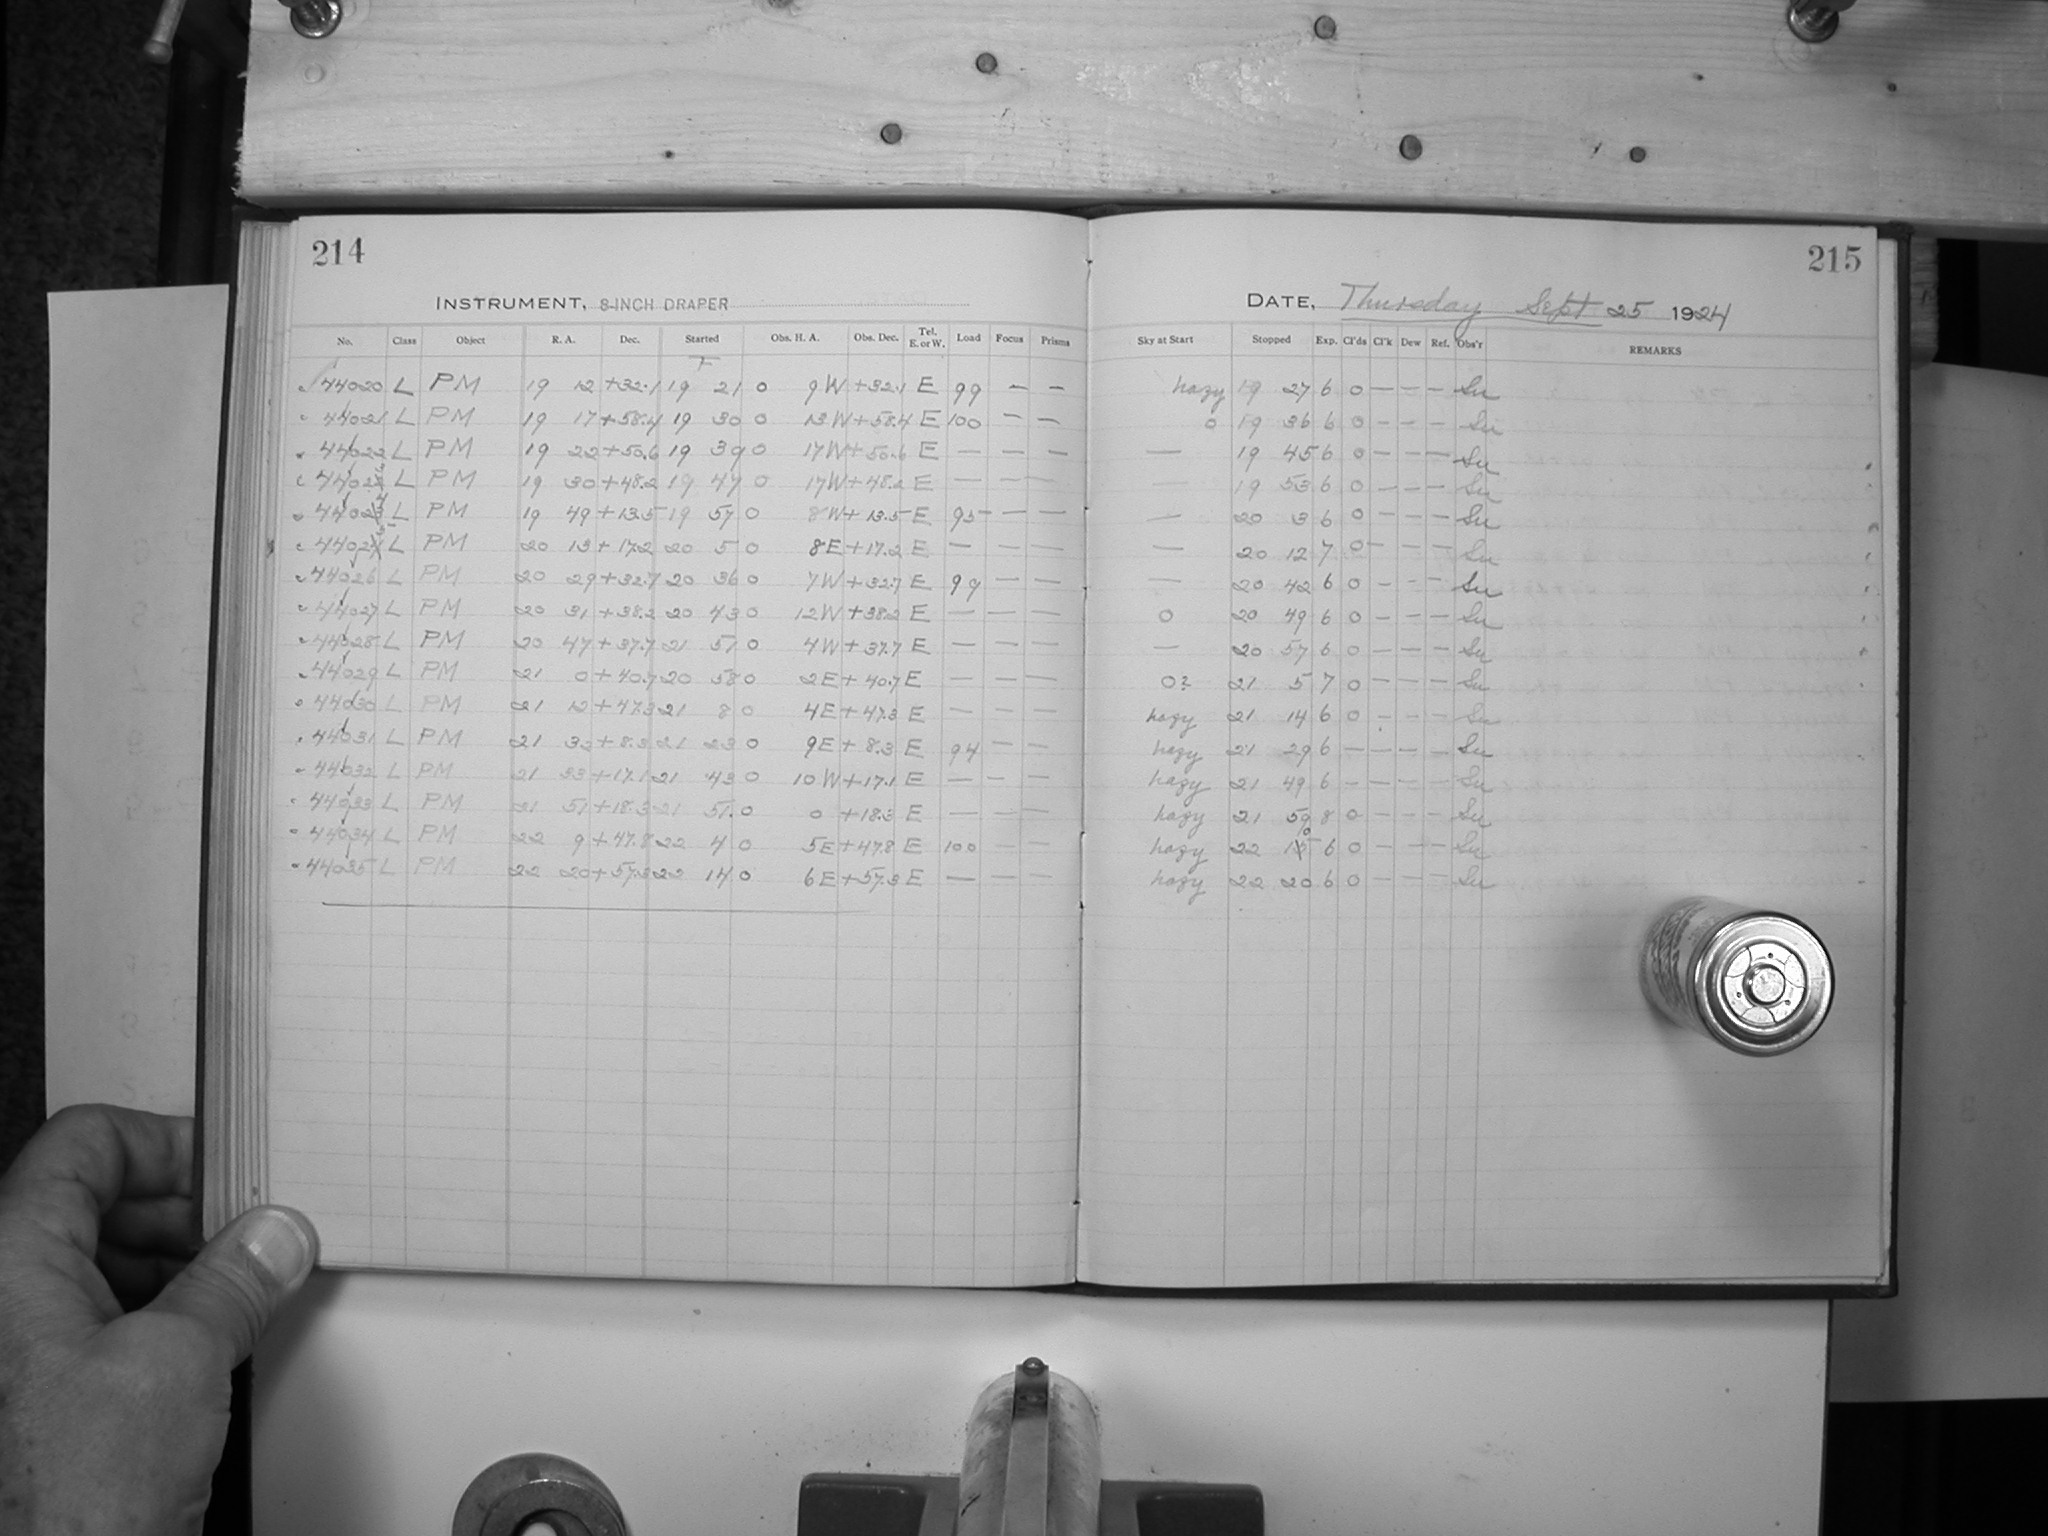 214
INSTRUMENT, 8-INCH DRAPER
No. Class Object R. A. Dec. Started Obs. H. A. Obs. Dec. Tel. E. or W. Load Focus Prisms
F
44020 L PM 19 12 +32.1 19 21 0 9W +32.1 E 99 — —
44021 L PM 19 17 +58.4 19 30 0 13W +58.4 E 100 — —
44022 L PM 19 22 +50.6 19 39 0 17W +50.6 E — — —
L PM 19 30 +48.2 19 47 0 17W +48.2 E — — —
L PM 19 49 +13.5 19 57 0 8W +13.5 E 95 — —
L PM 20 13 +17.2 20 5 0 8E +17.2 E — — —
44026 L PM 20 29 +32.7 20 36 0 7W +32.7 E 99 — —
44027 L PM 20 31 +38.2 20 43 0 12W +38.2 E — — —
44028 L PM 20 47 +37.7 21 51 0 4W +37.7 E — — —
44029 L PM 21 0 +40.7 20 58 0 2E +40.7 E — — —
44030 L PM 21 12 +47.3 21 8 0 4E +47.3 E — — —
44031 L PM 21 32 +8.3 21 23 0 9E +8.3 E 94 — —
44032 L PM 21 33 +17.1 21 43 0 10W +17.1 E — — —
44033 L PM 21 51 +18.3 21 51 0 0 +18.3 E — — —
44034 L PM 22 9 +47.8 22 4 0 5E +47.8 E 100 — —
44035 L PM 22 20 +57.3 22 14 0 6E +57.3 E — — —
215
DATE, Thursday Sept 25 1924
Sky at Start Stopped Exp. Cl'ds Cl'k Dew Ref. Obs'r REMARKS
hazy 19 27 6 0 — — — Su
0 19 36 6 0 — — — Su
— 19 45 6 0 — — — Su
— 19 53 6 0 — — — Su
— 20 3 6 0 — — — Su
— 20 12 7 0 — — — Su
— 20 42 6 0 — — — Su
0 20 49 6 0 — — — Su
— 20 57 6 0 — — — Su
0? 21 5 7 0 — — — Su
hazy 21 14 6 0 — — — Su
hazy 21 29 6 — — — — Su
hazy 21 49 6 — — — — Su
hazy 21 59 8 0 — — — Su
hazy 22 10 6 0 — — — Su
hazy 22 20 6 0 — — — Su